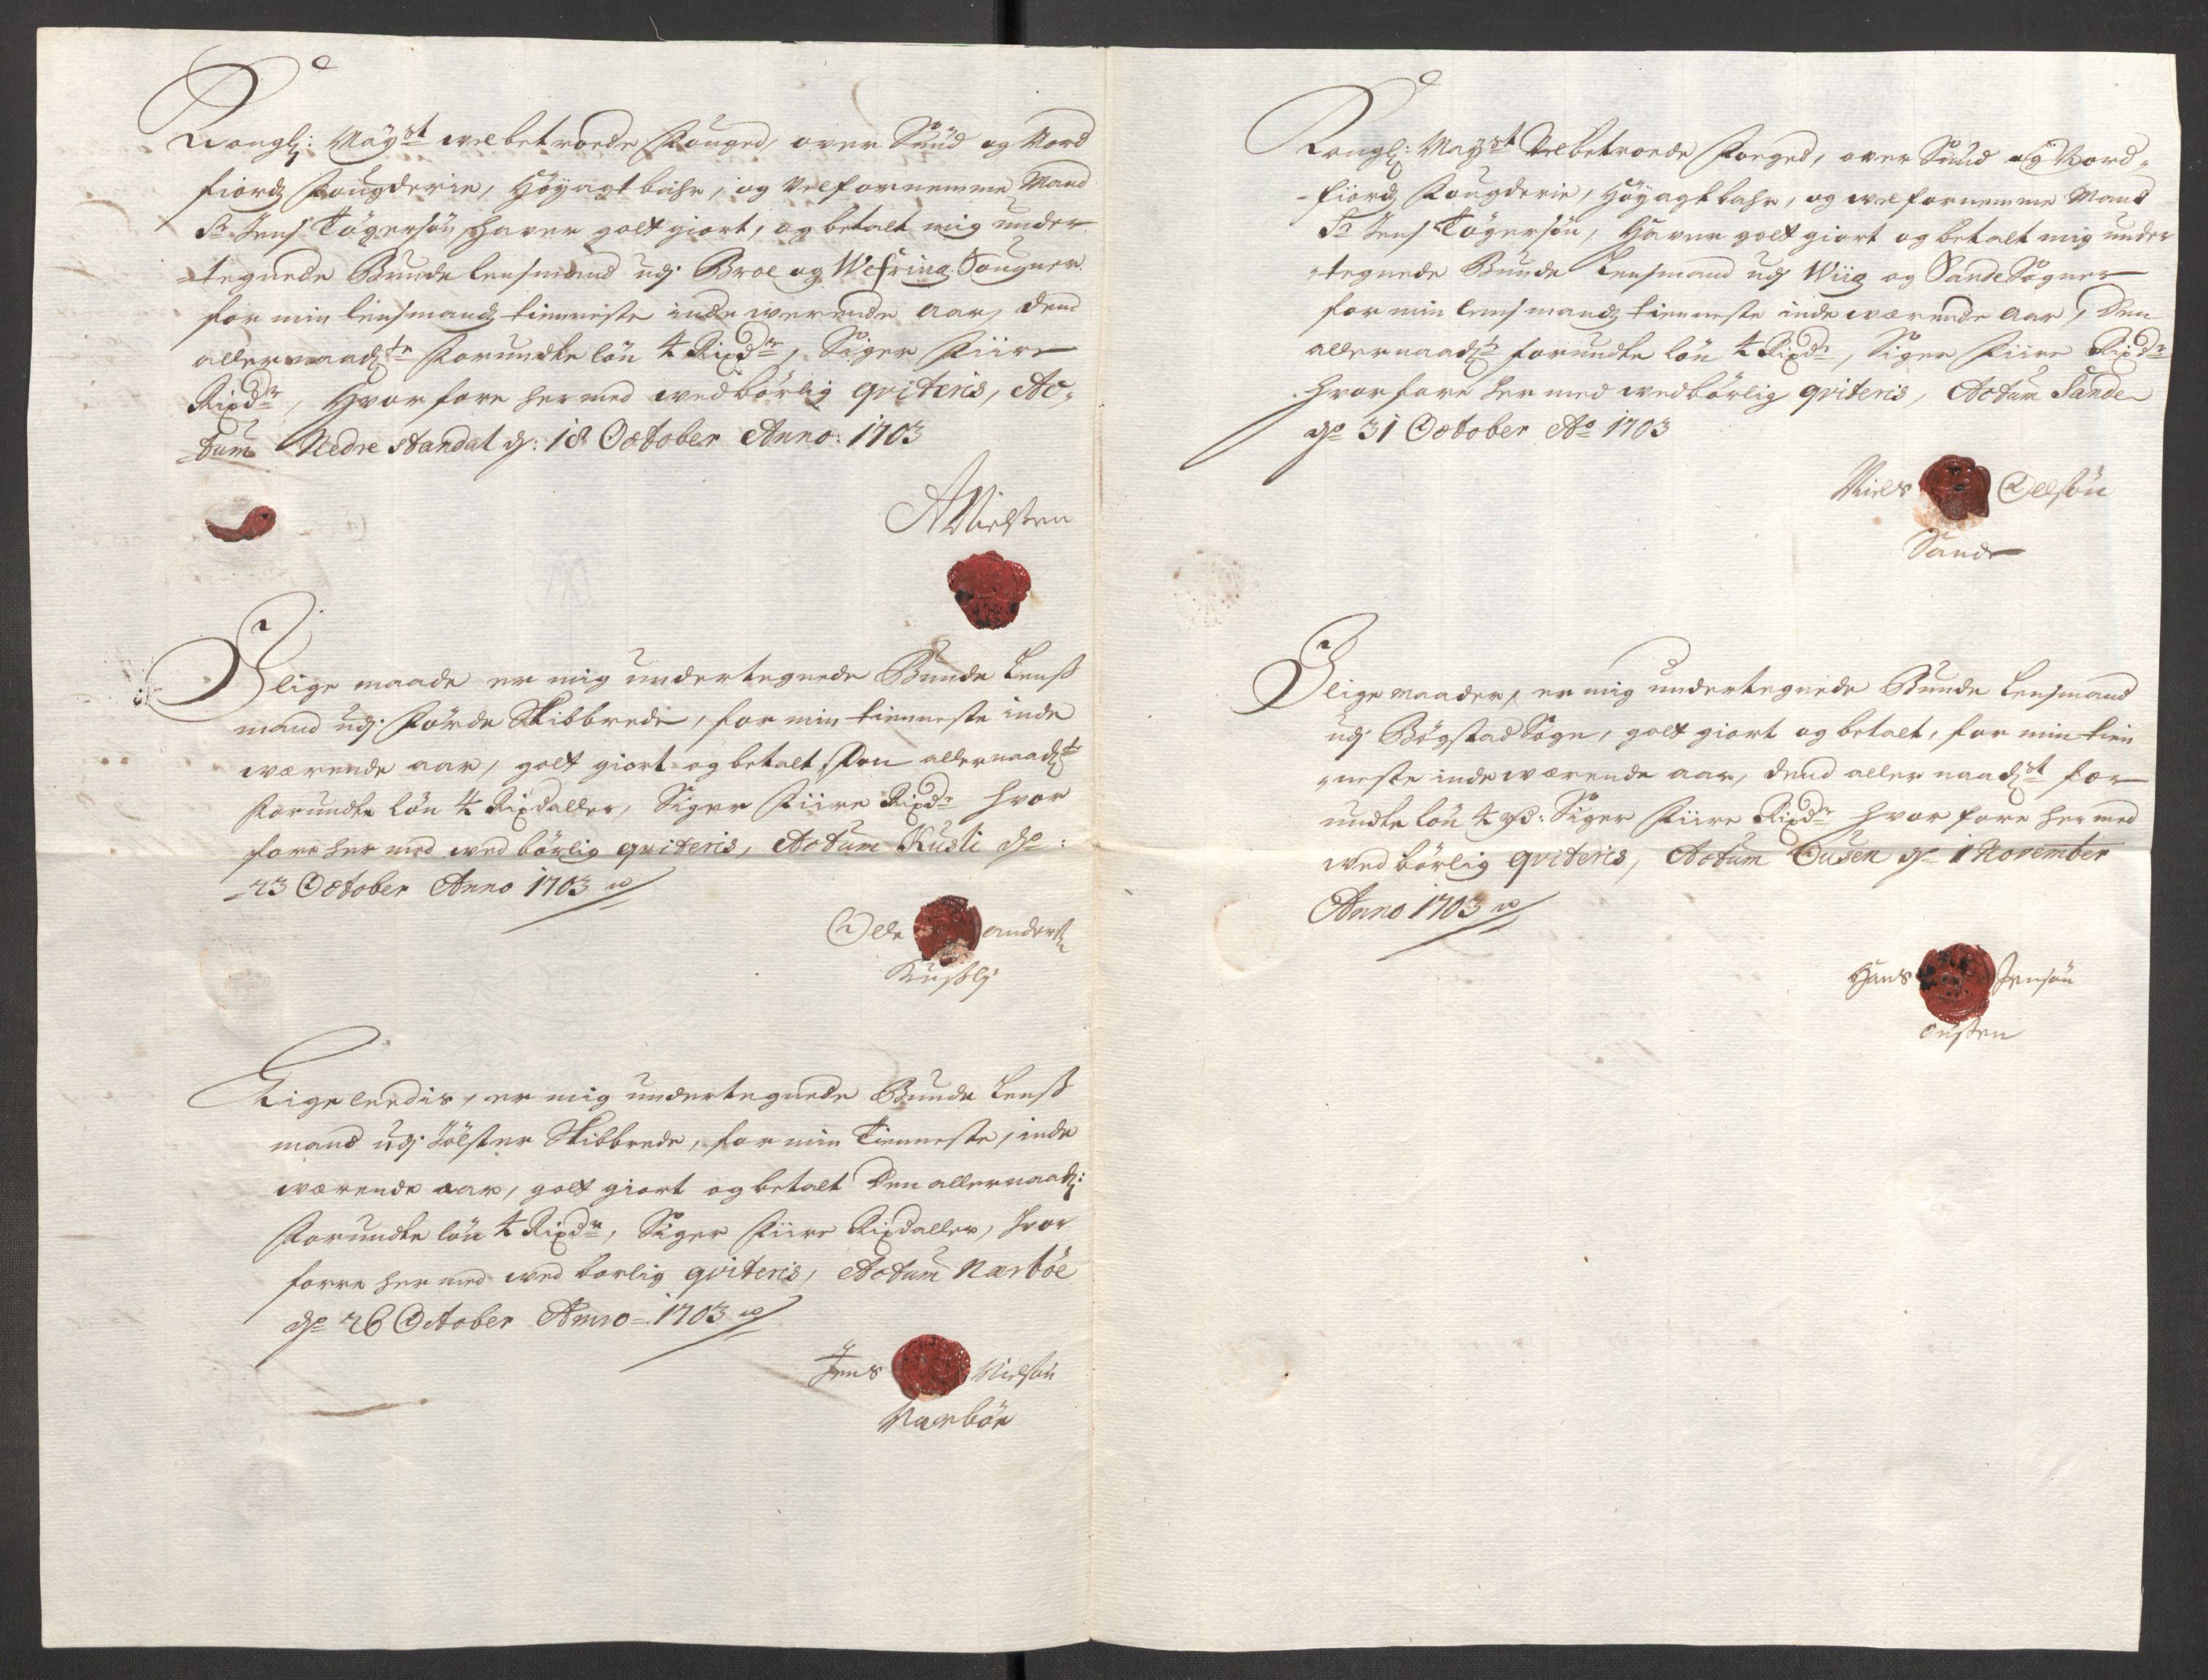 Kongl: Mayst welbetroede Fouged, over Sund og Nord
fiords Fougderie, Höyagtbahr, og Velfornemme Mand
Sr Jens Tögersön, haver gott giort, og betalt mig under
tegnede Bunde Lensmand udj Broe og Wefring Sougner
for min lensmands tienneste inde werende aar, dend
allernaadste forundte lön 4 Rixdr, Siger Fiire
Rixdr, Hvorfore hermed wedbörlig qviteris, Ac-
tum Nedre Standal d: 18 October Anno: 1703
ANielsen
Slige maade er mig undertegnede Bunde Lenss
mand udj Förde Skibbrede, for min tienneste inde
werende aar, gott giort og betalt Den allernaadste
forundte lön 4 Rixdaller, Siger Fiire Rixdr hvor
fore her med wed börlig qviteris, Actum Kusli do:
23 October Anno 1703
Olle anders
Kussli
Ligeleedis, er mig undertegnede Bunde Lenss
mand udj Jölster Skibbrede, for min Tienneste, inde
werende aar, gott giort og betalt Den allernaad:
forundte lön 4 Rixdr, Siger Fiire Rixdaller, hvor
forre her med wed borlig qviteris, Actum Narböe
do 26 October Anno 1703
Jens Nielsön
Narböe
Kongl: Mayst Velbetroede Foged, over Sund og Nord-
fiords Fougderie, Höyagtbahr, og welfornemme Mand
Sr Jens Tögersön, Haver gott giort og betalt mig under
tegnede Bunde Lensmand udj Wiig og Sande Sogner
for min lensmands tienneste inde wærende aar, Den
allernaadste forundte lön 4 Rixdr, Siger Fiire Rixdr
hvorfore her med wedbörlig qviteris, Actum Sande
do 31 October Ao 1703
Niels Ollsön
Sande
Slige maader, er mig undertegnede Bunde Lensmand
udj Bögstad Sogn, gott giort og betalt, for min tien
neste inde wærende aar, dend aller naadst for
undte lön 4 Rd: Siger Fiire Rixdr hvor fore her med
wed börlig qviteris, Actum Ousen do 1 November
Anno 1703
Hans Jensön
oussen